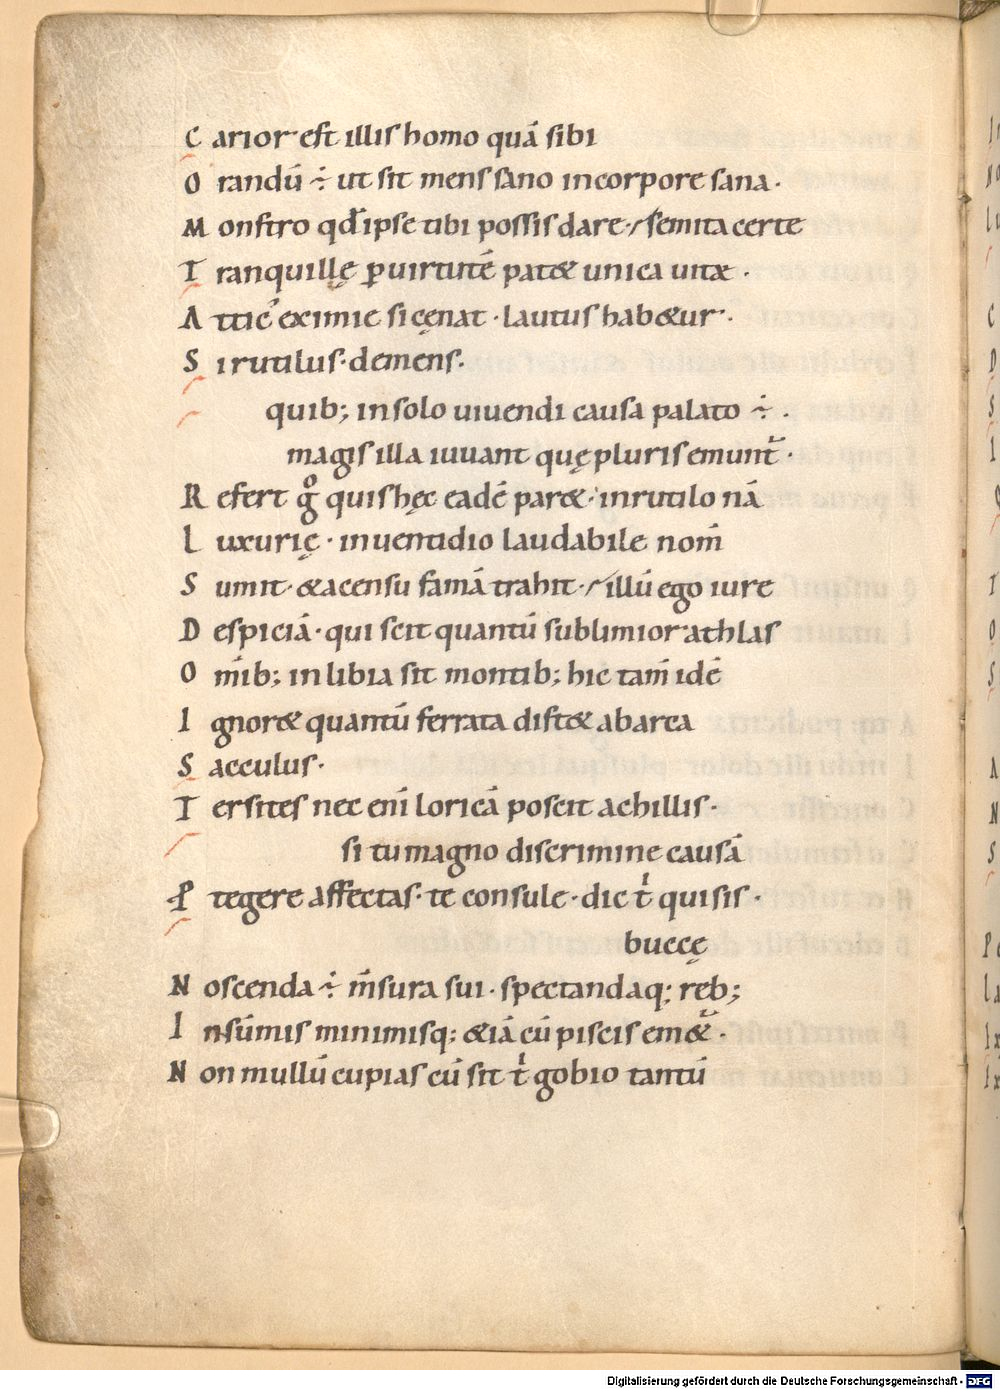 C arior est illis homo quā sibi
O randū ÷ ut sit mens sano incorpore sana·
M onstro qđ ipse tibi possis dare·/ semita certe
T ranquillę ꝑ uirtutē patet unica uitæ ·
A ttic᾽ eximie si cęnat · lautus hab&ur·
S i rutilus· demens·
quib; in solo uiuendi causa palato ÷ ·
magis illa iuuant quę pluris emunt᷑ ·
R efert gͦ quis hęc eadē par& · in rutilo nā
L uxurię · in uentidio laudabile nom̄
S umit· & acensu famā trahit·/ illū ego iure
D espiciā· qui scit quantū sublimior athlas
O m̄ib; in libia sit montib; hic tam̄ idē
I gnor& quantū ferrata dist& abarca
S acculus·
T ersites nec eni᷑ loricā poscit achillis·
si tu magno discrimine causā
P tegere affectas· te consule · dic t̓ qui sis ·
buccę
N oscenda ÷ m̄sura sui · spectandaq; reb;
I n sūmis minimisq; & iā cū piscis em&᷑ ·
N on mullū cupias cū sit t̓ gobio tantū
Digitalisierung gefördert durch die Deutsche Forschungsgemeinschaft - DFG